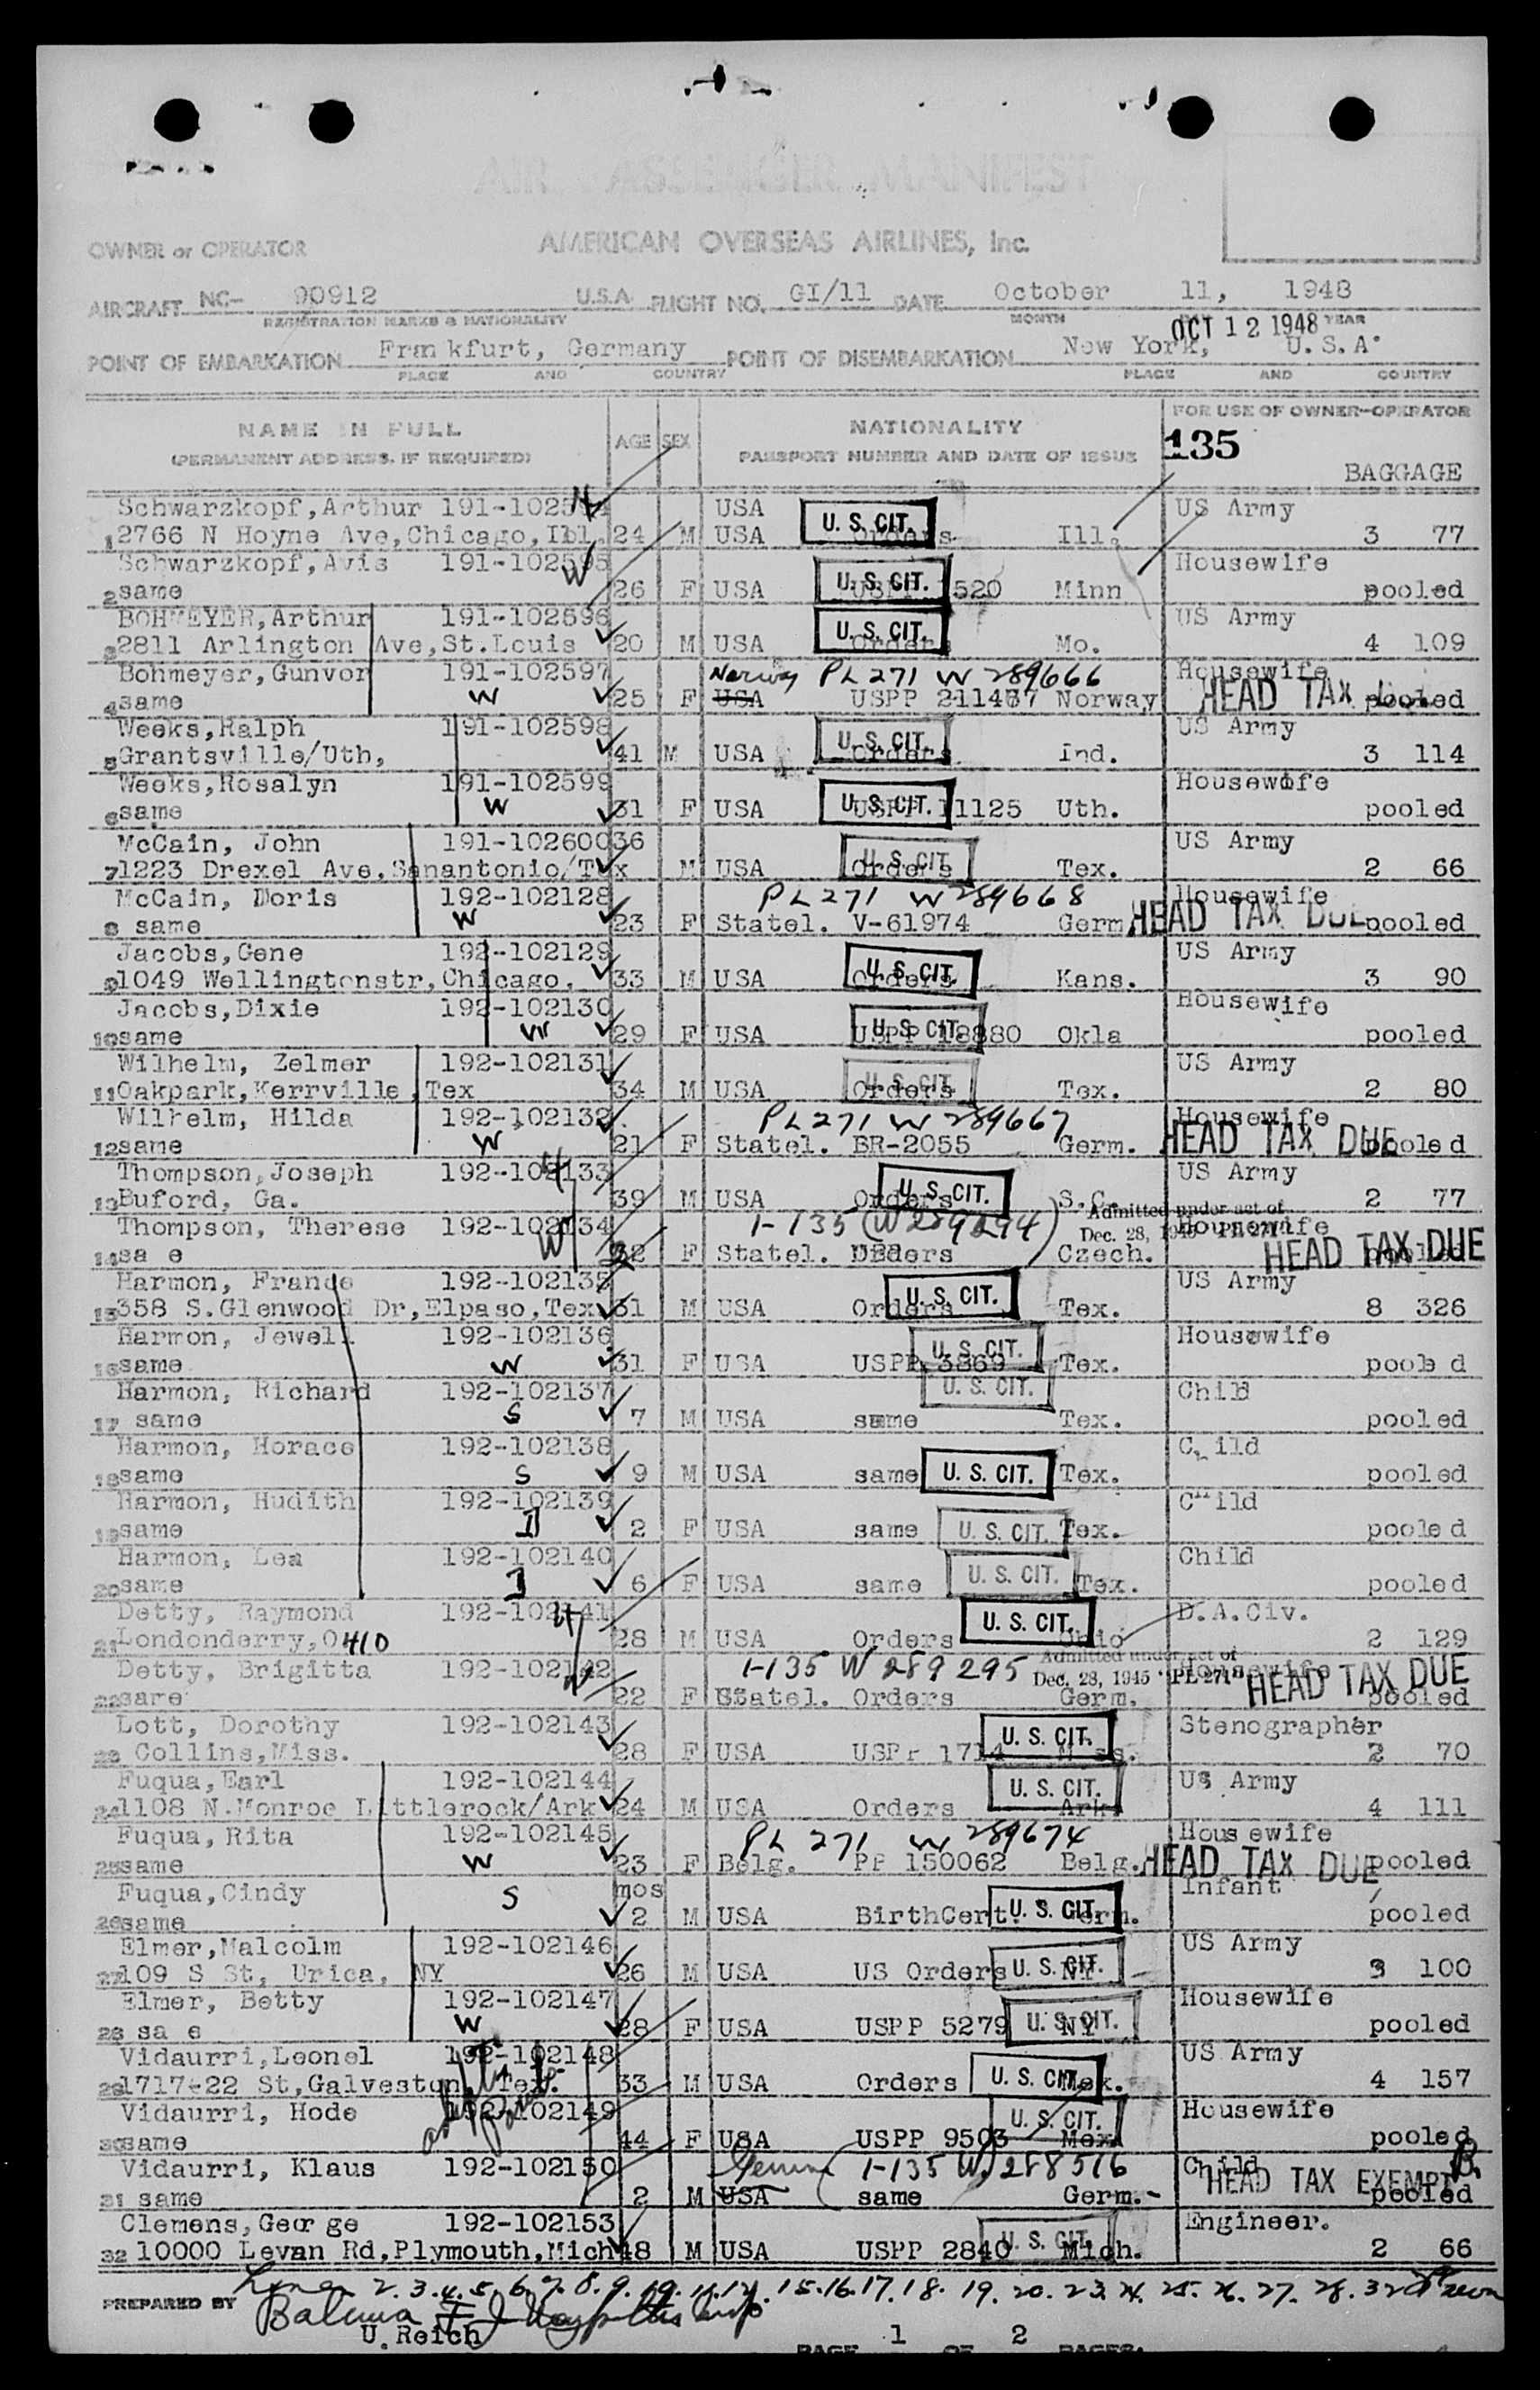 AIR PASSENGER MANIFEST
OWNER or OPERATOR AMERICAN OVERSEAS AIRLINES, Inc.
AIRCRAFT NC- 90912 U.S.A. FLIGHT NO. GI/11 DATE October 11, 1948
REGISTRATION MARKS & NATIONALITY MONTH YEAR
OCT 12 1948
POINT OF EMBARKATION Frankfurt, Germany POINT OF DISEMBARKATION New York, U.S.A.
PLACE AND COUNTRY PLACE AND COUNTRY
NAME IN FULL AGE SEX NATIONALITY FOR USE OF OWNER-OPERATOR
(PERMANENT ADDRESS, IF REQUIRED) PASSPORT NUMBER AND DATE OF ISSUE 135
BAGGAGE
Schwarzkopf,Arthur 191-10259 USA US Army
1 2766 N Hoyne Ave,Chicago,Ibl. 24 M USA Orders U. S. CIT. Ill. 3 77
Schwarzkopf,Avis 191-102595 W Housewife
2 same 26 F USA U. S. CIT. 520 Minn pooled
BOHMEYER,Arthur 191-102596 US Army
3 2811 Arlington Ave,St.Louis 20 M USA Orders U. S. CIT. Mo. 4 109
Bohmeyer,Gunvor 191-102597 Norway PL 271 W 289666 Housewife
4 same W 25 F USA USPP 211467 Norway HEAD TAX pooled
Weeks,Ralph 191-102598 US Army
5 Grantsville/Uth, 41 M USA Orders U. S. CIT. Ind. 3 114
Weeks,Rosalyn 191-102599 Housewofe
6 same W 31 F USA USPP 11125 U. S. CIT. Uth. pooled
McCain, John 191-102600 36 US Army
7 1223 Drexel Ave,Sanantonio/Tex M USA Orders U. S. CIT. Tex. 2 66
McCain, Doris 192-102128 PL 271 W 289668 Housewife
8 same W 23 F Statel. V-61974 Germ HEAD TAX DUE pooled
Jacobs,Gene 192-102129 US Army
9 1049 Wellingtonstr,Chicago, 33 M USA Orders U. S. CIT. Kans. 3 90
Jacobs,Dixie 192-102130 Housewife
10 same W 29 F USA USPP 18880 U. S. CIT. Okla pooled
Wilhelm, Zelmer 192-102131 US Army
11 Oakpark,Kerrville,Tex 34 M USA Orders U. S. CIT. Tex. 2 80
Wilhelm, Hilda 192-102132 PL 271 W 289667 Housewife
12 same W 21 F Statel. BR-2055 Germ. HEAD TAX DUE pooled
Thompson,Joseph 192-102133 US Army
13 Buford, Ga. 39 M USA Orders U. S. CIT. S.C. 2 77
Thompson, Therese 192-102134 1-135 (W289294) Admitted under act of Dec. 28, 1945 PL 271 Housewife
14 sa e W F Statel. Orders Czech. HEAD TAX DUE pooled
Harmon, France 192-102135 US Army
15 358 S.Glenwood Dr,Elpaso,Tex 31 M USA Orders U. S. CIT. Tex. 8 326
Harmon, Jewell 192-102136 Housewife
16 same W 31 F USA USPP 3869 U. S. CIT. Tex. pooled
Harmon, Richard 192-102137 U. S. CIT. Child
17 same S 7 M USA same Tex. pooled
Harmon, Horace 192-102138 Child
18 same S 9 M USA same U. S. CIT. Tex. pooled
Harmon, Hudith 192-102139 Child
19 same 2 F USA same U. S. CIT. Tex. pooled
Harmon, Lea 192-102140 Child
20 same 6 F USA same U. S. CIT. Tex. pooled
Detty, Raymond 192-102141 D.A.Civ.
21 Londonderry,OHIO 28 M USA Orders U. S. CIT. Ohio 2 129
Detty, Brigitta 192-102142 1-135 W 289295 Admitted under act of Dec. 28, 1945 PL 271 Housewife
22 same W 22 F Statel. Orders Germ. HEAD TAX DUE pooled
Lott, Dorothy 192-102143 Stenographer
23 Collins,Miss. 28 F USA USPP 1714 U. S. CIT. Miss. 2 70
Fuqua,Earl 192-102144 US Army
24 1108 N.Monroe Littlerock/Ark 24 M USA Orders U. S. CIT. Ark. 4 111
Fuqua,Rita 192-102145 PL 271 W 289674 Housewife
25 same W 23 F Belg. PP 150062 Belg. HEAD TAX DUE pooled
Fuqua,Cindy S mos Infant
26 same 2 M USA BirthCert. U. S. CIT. Germ. pooled
Elmer,Malcolm 192-102146 US Army
27 109 S St, Urica, NY 26 M USA US Orders U. S. CIT. NY 3 100
Elmer, Betty 192-102147 Housewife
28 sa e W 28 F USA USPP 5279 U. S. CIT. NY pooled
Vidaurri,Leonel 192-102148 US Army
29 1717-22 St,Galveston, Tex. 33 M USA Orders U. S. CIT. Mex. 4 157
Vidaurri, Hode 192-102149 Housewife
30 same 44 F USA USPP 9503 U. S. CIT. Mex. pooled
Vidaurri, Klaus 192-102150 German 1-135 W. 288516 Child
31 same 2 M USA same Germ. HEAD TAX EXEMPT pooled
Clemens,George 192-102153 Engineer.
32 10000 Levan Rd,Plymouth,Mich 48 M USA USPP 2840 U. S. CIT. Mich. 2 66
Lines 2.3.4.5.6.7.8.9.10.11.12. 15.16.17.18. 19. 20. 23. 24. 25. 26. 27. 28. 32
PREPARED BY
U.Reich
PAGE 1 OF 2 PAGES.